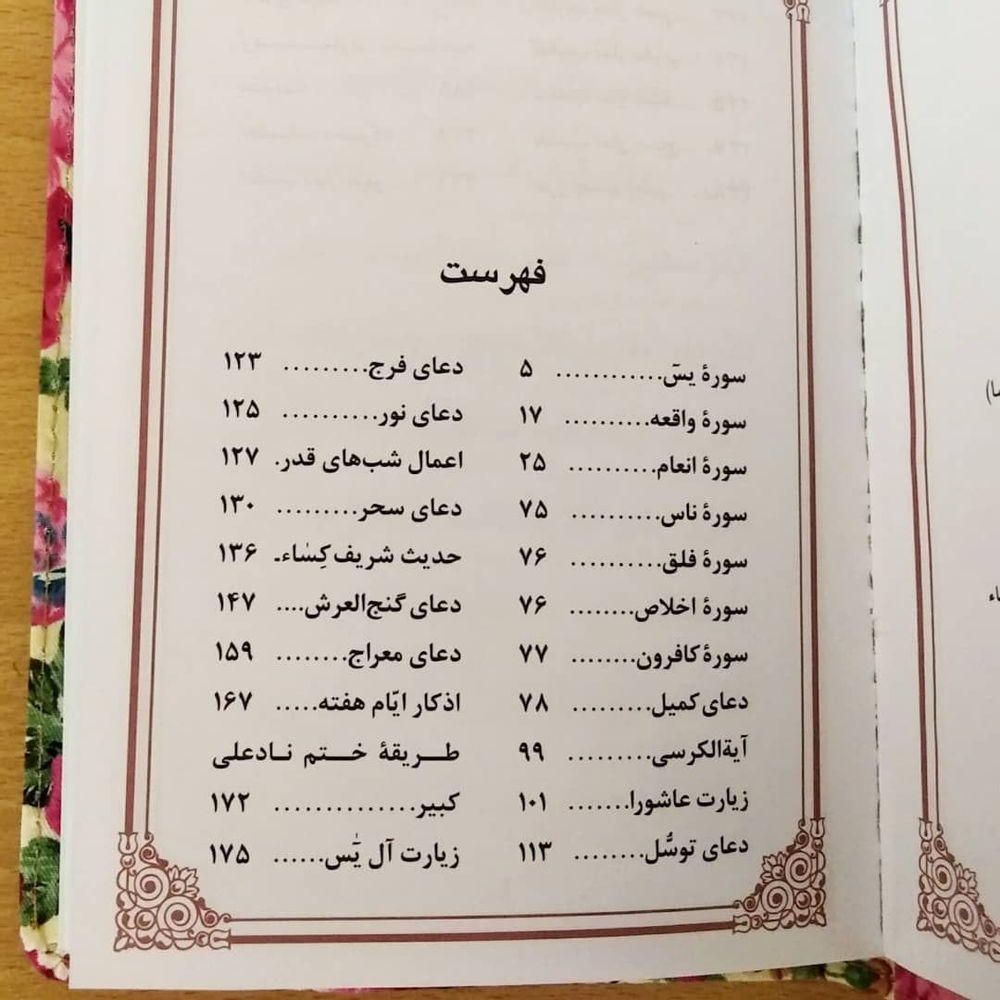 فهرست
سورۀ یسٓ............ ۵
سورۀ واقعه.......... ۱۷
سورۀ انعام.......... ۲۵
سورۀ ناس........... ۷۵
سورۀ فلق........... ۷۶
سورۀ اخلاص........ ۷۶
سورۀ کافرون........ ۷۷
دعای کمیل.......... ۷۸
آیةالکرسی.......... ۹۹
زیارت عاشورا....... ۱۰۱
دعای توسُّل......... ۱۱۳
دعای فرج.......... ۱۲۳
دعای نور........... ۱۲۵
اعمال شب‌های قدر. ۱۲۷
دعای سحر.......... ۱۳۰
حدیث شریف کِساء. ۱۳۶
دعای گنج‌العرش.... ۱۴۷
دعای معراج......... ۱۵۹
اذکار ایّام هفته..... ۱۶۷
طریقۀ ختم نادعلی
کبیر............... ۱۷۲
زیارت آل یٰس...... ۱۷۵